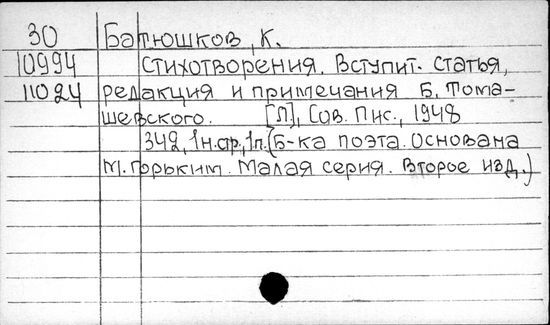 30 Батюшков, К.
10994 Стихотворения. Вступит. статья,
11024 редакция и примечания Б. Тома-
шевского. [Л], Сов. Пис., 1948
342, 1 н.ф., 1 п. (Б-ка поэта. Основана
М. Горьким. Малая серия. Второе изд.)